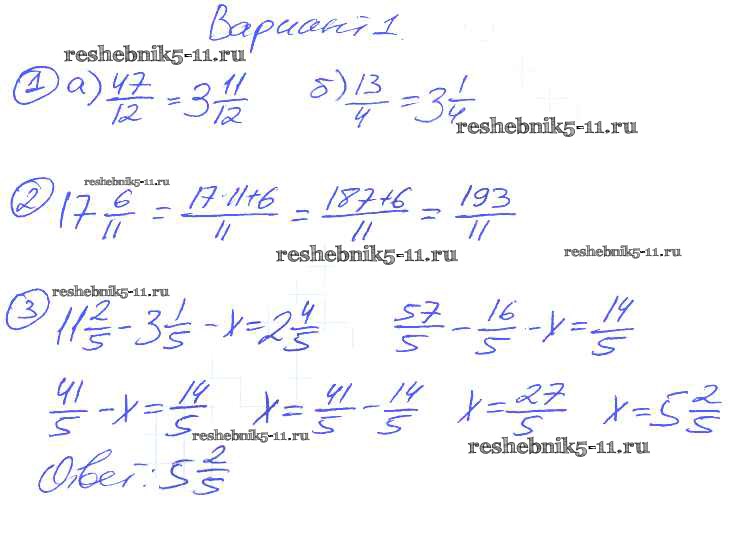 Вариант 1.
reshebnik5-11.ru
① а) 47/12 = 3 11/12 б) 13/4 = 3 1/4
reshebnik5-11.ru
reshebnik5-11.ru
② 17 6/11 = 17·11+6/11 = 187+6/11 = 193/11
reshebnik5-11.ru reshebnik5-11.ru
reshebnik5-11.ru
③ 11 2/5 - 3 1/5 - x = 2 4/5 57/5 - 16/5 - x = 14/5
41/5 - x = 14/5 x = 41/5 - 14/5 x = 27/5 x = 5 2/5
reshebnik5-11.ru reshebnik5-11.ru
Ответ: 5 2/5